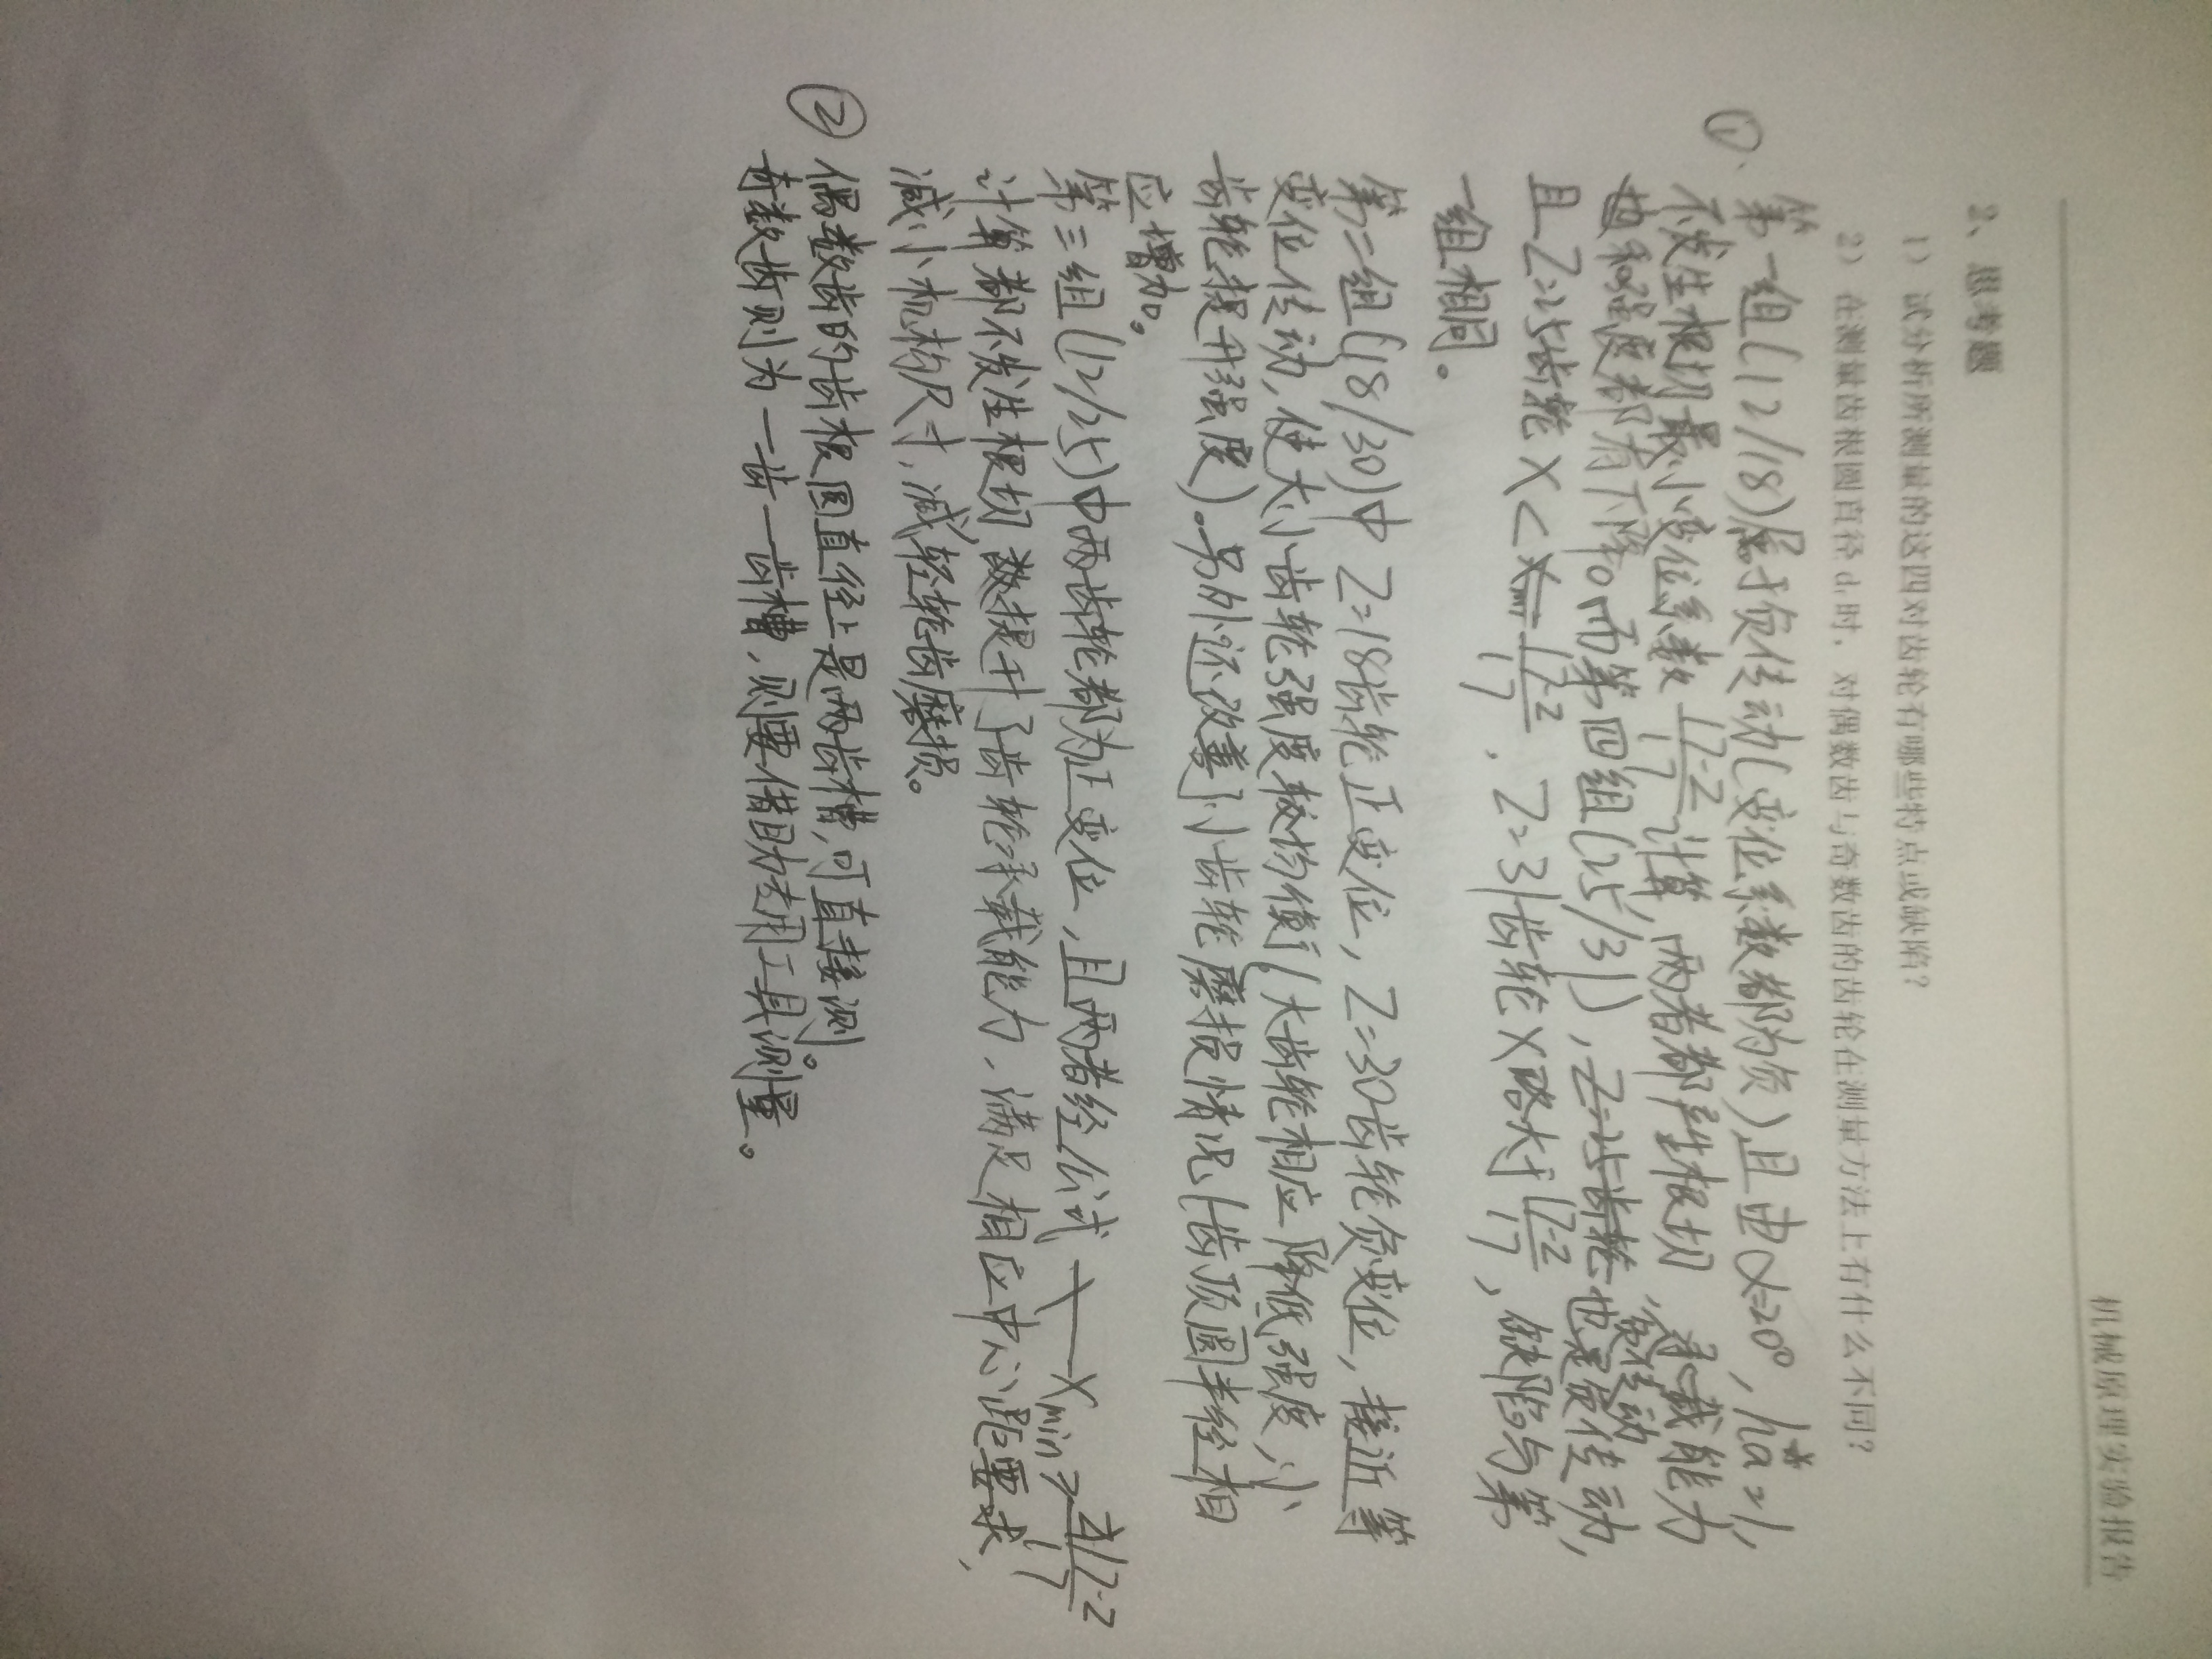 机械原理实验报告
3、思考题
1） 试分析所测量的这四对齿轮有哪些特点或缺陷？
2） 在测量齿根圆直径df时，对偶数齿与奇数齿的齿轮在测量方法上有什么不同？
①、第一组(12/18)属于负传动(变位系数都为负)且由α=20°,ha*=1,
不发生根切最小变位系数 17-Z/17 计算,两者都产生根切,承载能力
和强度都有下降。而第四组(25/31),也是负传动,
且Z=25齿轮 X<17-Z/17,Z=31齿轮X略大于17-Z/17,缺陷与第
一组相同。
第二组(18/30)中 Z=18齿轮正变位,Z=30齿轮负变位,接近等
变位传动,使大小齿轮强度较均衡(大齿轮相应降低强度,小
齿轮提升强度)。另外还改善了小齿轮磨损情况(齿顶圆半径相
应增加。
第三组(12/25)中两齿轮都为正变位,且两者经公式 Xmin≥17-Z/17
计算都不发生根切 数提升了齿轮承载能力,满足相应中心距要求,
减小机构尺寸,减轻轮齿磨损。
② 偶数齿的齿根圆直径上是两齿槽,可直接测。
奇数齿则为一齿一齿槽,则要借助专用工具测量。